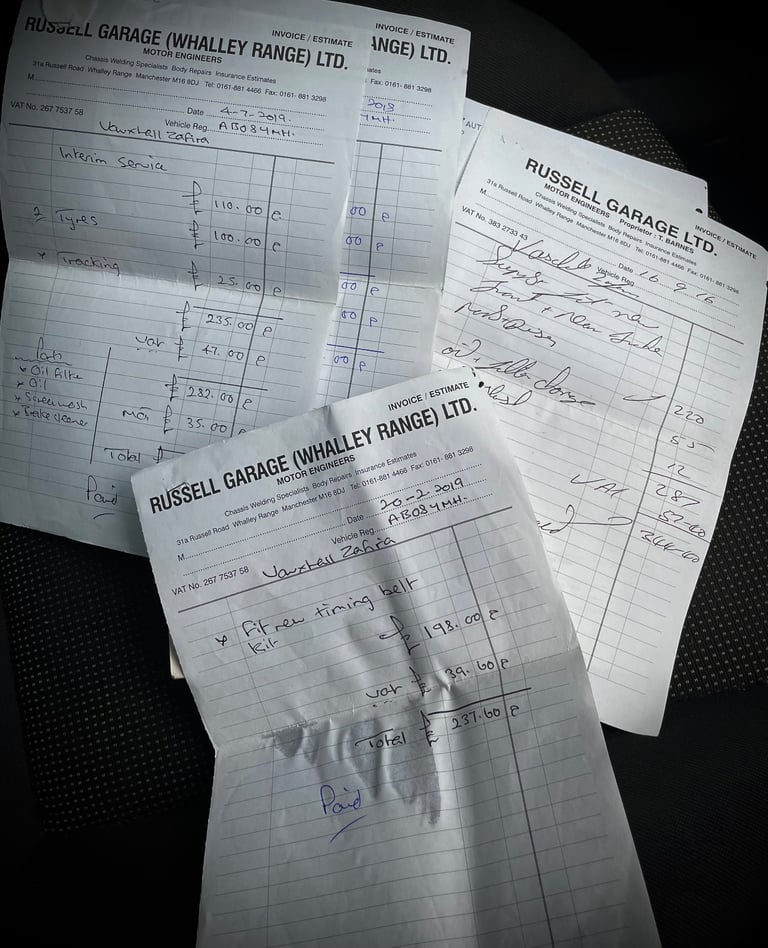 INVOICE / ESTIMATE
RUSSELL GARAGE (WHALLEY RANGE) LTD.
MOTOR ENGINEERS
Chassis Welding Specialists Body Repairs Insurance Estimates
31a Russell Road Whalley Range Manchester M16 8DJ Tel: 0161-881 4466 Fax: 0161- 881 3298
M
Date 4-7-2019.
VAT No. 267 7537 58 Vehicle Reg. AB08YMH.
Vauxhall Zafira
Interim Service
£ 110.00 P
2 Tyres £ 100.00 P
* Tracking £ 25.00 P
£ 235.00 P
Vat £ 47.00 P
£ 282.00 P
* Oil Filter
* Oil
* Screenwash
* Brake cleaner
MOT £ 35.00 P
Total £
Paid
INVOICE / ESTIMATE
ANGE) LTD.
Fax: 0161- 881 3298
00 P
00 P
00 P
00 P
00 P
AUT
INVOICE / ESTIMATE
RUSSELL GARAGE LTD.
MOTOR ENGINEERS Proprietor : T. BARNES
Chassis Welding Specialists Body Repairs Insurance Estimates
31a Russell Road, Whalley Range, Manchester M16 8DJ Tel: 0161-881 4466 Fax: 0161-881 3298
M
Date 16.9.16
VAT No. 383 2733 43 Vehicle Reg.
Supply & fit new
front & Rear brake
220
oil & filter change
55
12
287
VAT 57-40
344-40
INVOICE / ESTIMATE
RUSSELL GARAGE (WHALLEY RANGE) LTD.
MOTOR ENGINEERS
Chassis Welding Specialists Body Repairs Insurance Estimates
31a Russell Road Whalley Range Manchester M16 8DJ Tel: 0161-881 4466 Fax: 0161- 881 3298
M
Date 20-2-2019
VAT No. 267 7537 58 Vehicle Reg. AB08YMH.
Vauxhall Zafira
* Fit new timing belt
kit £ 198.00 P
Vat £ 39.60 P
Total £ 237.60 P
Paid